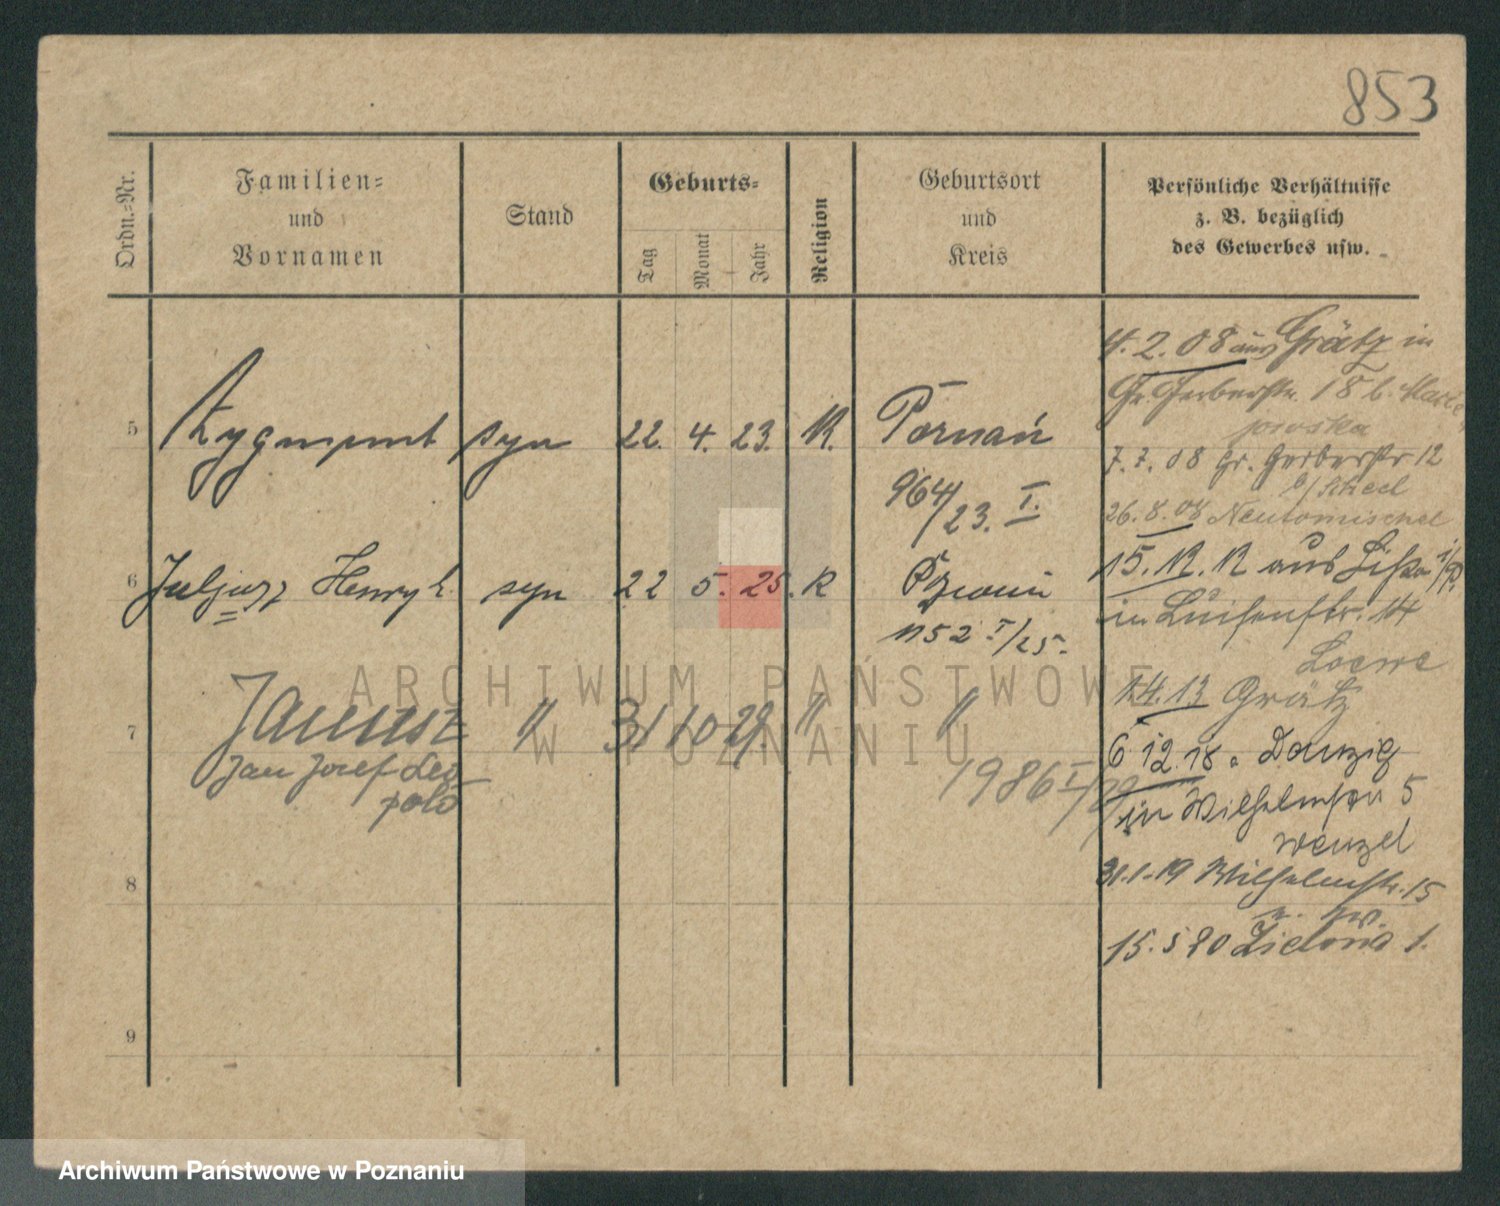 853
Ordn.-Nr.
Familien-
und
Vornamen
Stand
Geburts-
Tag
Monat
Jahr
Religion
Geburtsort
und
Kreis
Persönliche Verhältnisse
z. B. bezüglich
des Gewerbes usw.
5 Zygmunt syn 22. 4. 23. K. Poznań
964/23. I.
6 Juljusz Henryk syn 22 5. 25. K Poznań
1152 I/25.
7 Janusz " 31 10 29. " "
Jan Josef Leo
pold
1986 I/29
8
9
4. 2. 08 aus Grätz in
Gr. Gerberstr. 18 b.
7. 7. 08 Gr. Gerberstr 12
b/
26. 8. 08 Neutomischel
15. aus Lissa i/P.
in Luisenstr. 14
Loewe
1.4.13 Grätz
6 12. 18 a Danzig
in 5
Wenzel
31.1.19 Wilhelmstr. 15
15. 5 20 Zielona 1.
ARCHIWUM PAŃSTWOWE
W POZNANIU
Archiwum Państwowe w Poznaniu